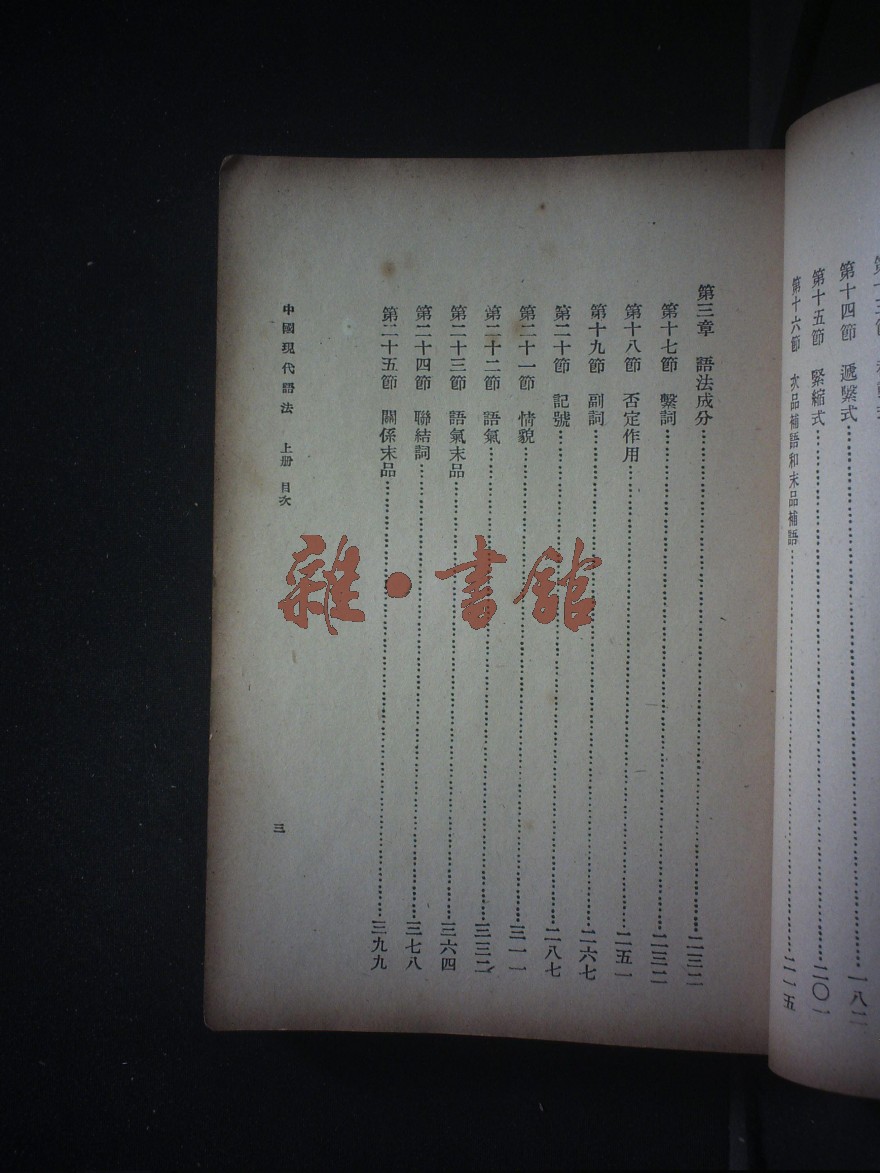 第十四節　遞繫式……一八二
第十五節　緊縮式……二〇一
第十六節　次品補語和末品補語……二一五
第三章　語法成分……二三二
第十七節　繫詞……二三二
第十八節　否定作用……二五一
第十九節　副詞……二六七
第二十節　記號……二八七
第二十一節　情貌……三一一
第二十二節　語氣……三三二
第二十三節　語氣末品……三六四
第二十四節　聯結詞……三七八
第二十五節　關係末品……三九九
中國現代語法　上册　目次
三
雜・書館